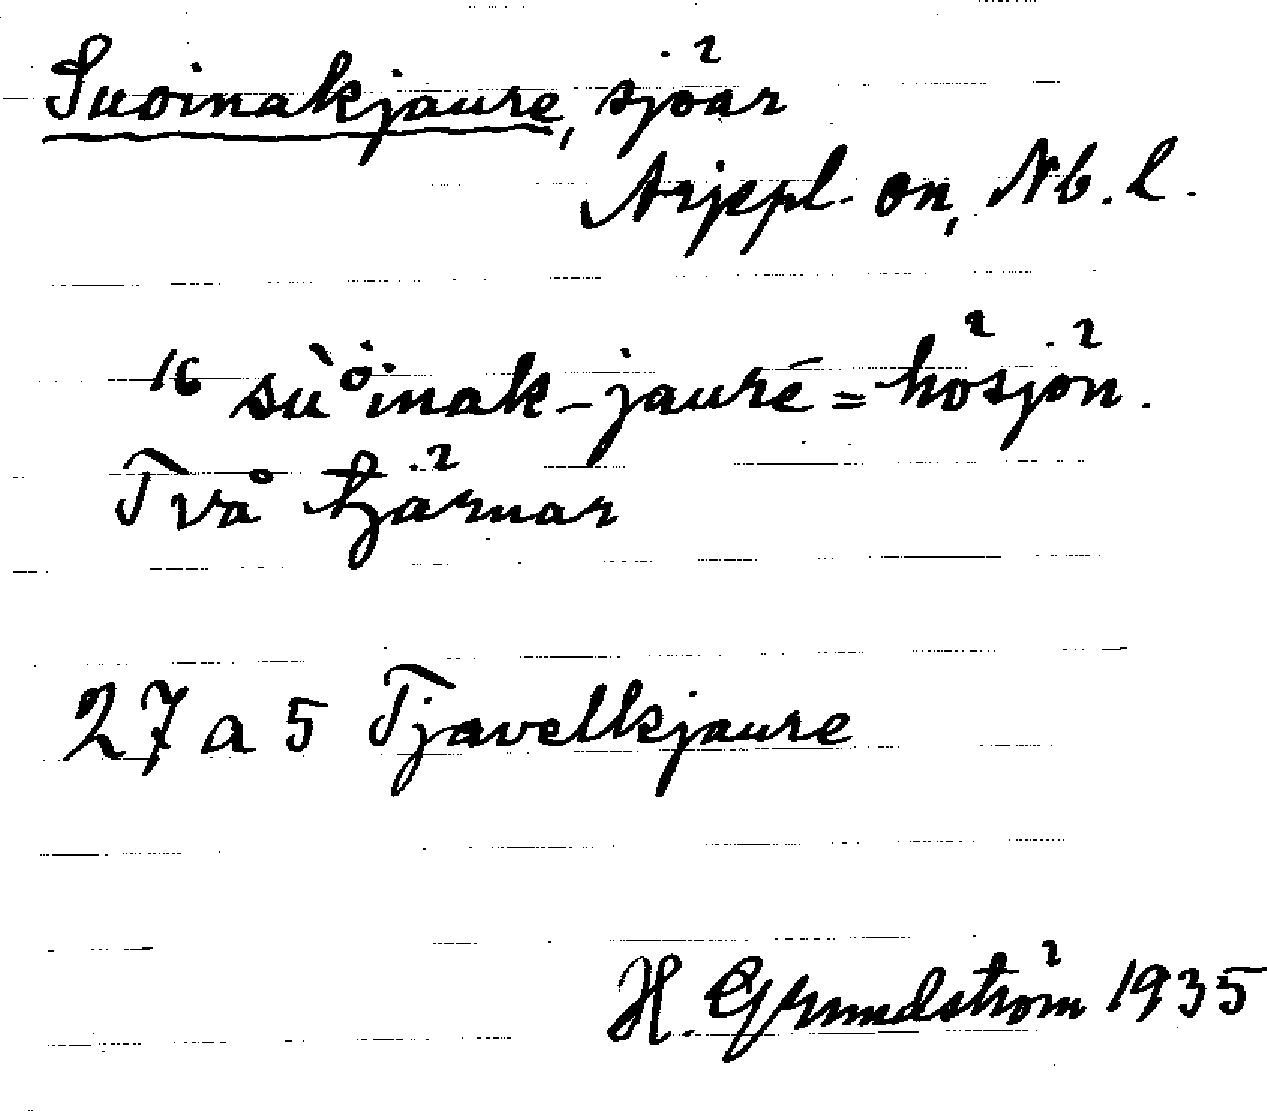 Suoinakjaure, sjöar
Arjepl. sn, Nb. l.
16 sùo̊inak-jaurē = hösjön.
Två tjärnar
27 a 5 Tjavelkjaure
H. Grundström 1935